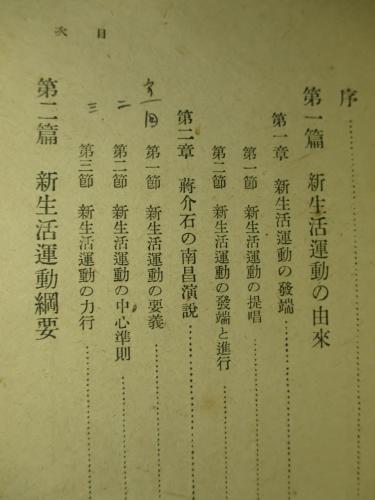 目次
序
第一篇 新生活運動の由來
第一章 新生活運動の發端
第一節 新生活運動の提唱
第二節 新生活運動の發端と進行
第二章 蔣介石の南昌演說
第一節 新生活運動の要義
二 第二節 新生活運動の中心準則
三 第三節 新生活運動の力行
第二篇 新生活運動綱要